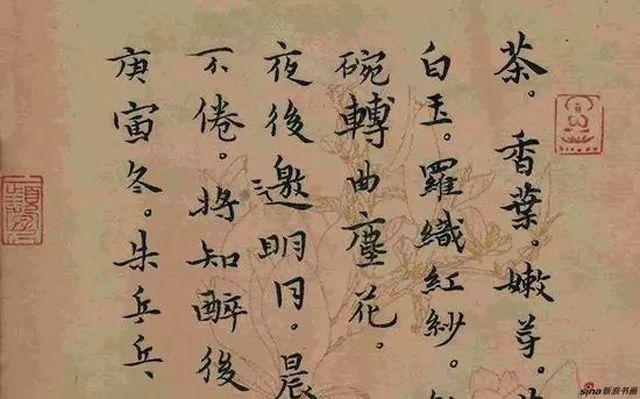 茶。香葉。嫩芽。
白玉。羅織紅紗。
碗轉曲塵花。
夜後邀明月。晨
不倦。將知醉後
庚寅冬。朱乒乓
sina 新浪书画